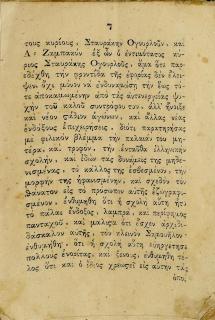 7
τους κυρίους, Σταυράκην Ογουρλοῦν, καὶ
Δ. Ζαμπακὸν ἐξ ὧν ὁ ἐντιμότατος κύ-
ριος Σταυράκης Ογουρλοῦς, ἅμα ὅτι παρ-
εδέχθη τὴν φροντίδα τῆς ἐφορίας δὲν ἔλει-
ψεν, ὄχι μόνον νὰ ἐνδυναμώσῃ τὴν ἕως τό-
τε ἀποκαμωμένην ἀπὸ τὰς αὐτενεργείας ψυ-
χήν τοῦ καλοῦ συντρόφου του, ἀλλ' ἤνοιξε
καὶ νέον στάδιον ἀγώνων, καὶ ἄλλας νέας
ἐνδόξους ἐπιχειρήσεις, διότι παρατηρήσας
μὲ φιλικὸν βλέμμα τὴν παλαιὰν του μη-
τέρα, καὶ τροφον, τὴν ἐνταῦθα ἑλληνικὴν
σχολὴν, καὶ ἰδὼν τας δυνάμεις της μηδε-
νισμένας, τὸ κάλλος της ἐσβεσμένον, τὴν
μορφήν της ἠφανισμένην, καὶ σχεδὸν τὸν
θάνατον εἰς τὸ πρόσωπον αὐτῆς ἐζωγραφι-
σμένον, ἐνθυμήθη ὅτι ἡ σχολὴ αὐτὴ ἦτο
τὸ πάλαι ἔνδοξος, λαμπρα, καὶ περίφημος
πανταχοῦ, καὶ μάλιστα ὅτι ἔσχεν ἀρχιδι-
δάσκαλον αὐτῆς, τὸν κλεινὸν Σαμουήλον·
ἐνθυμήθη, ὅτι ἡ σχολὴ αὐτὴ εὐηργέτησε
πολλοὺς ἐνορίτας, καὶ ξένους, ἐνθυμήθη τέ-
λος ὅτι καὶ ὁ ἴδιος χρεωστεῖ εἰς αὐτὴν τὰς
ὁποι.